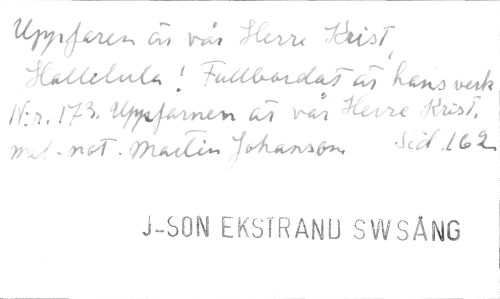 Uppfaren är vår Herre Krist,
Hallelula! Fullbordat är hans verk
N:r. 173. Uppfarnen är vår Herre Krist.
mel-not. Martin Johanson. Sid. 162
J-SON EKSTRAND SWSÅNG